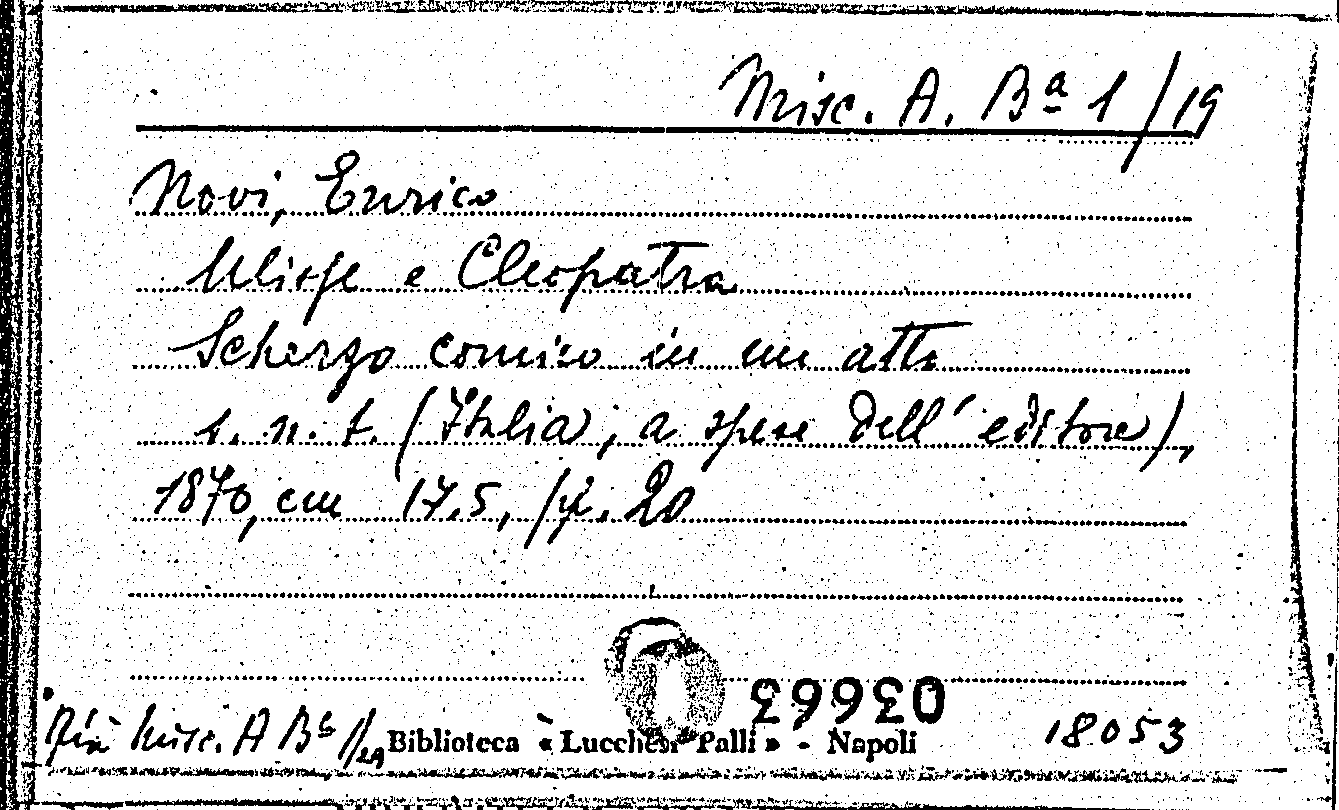 Misc. A. Bª 1/19
Novi, Enrico
Ulisse e Cleopatra
Scherzo comico in un atto
s. n. t. (Italia, a spese dell'editore),
1870, cm 17.5, pp. 20
03663
Già Misc. A
Biblioteca « Lucchesi Palli » - Napoli
18053